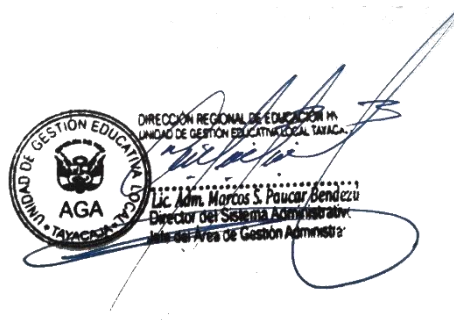 UNIDAD DE GESTIÓN EDUCATIVA LOCAL
AGA
TAYACAJA
DIRECCIÓN REGIONAL DE EDUCACIÓN
UNIDAD DE GESTIÓN EDUCATIVA LOCAL TAYACA
Lic. Adm. Marcos S. Paucar Bendezu
Director del Sistema Administrativo
Jefe del Área de Gestión Administra